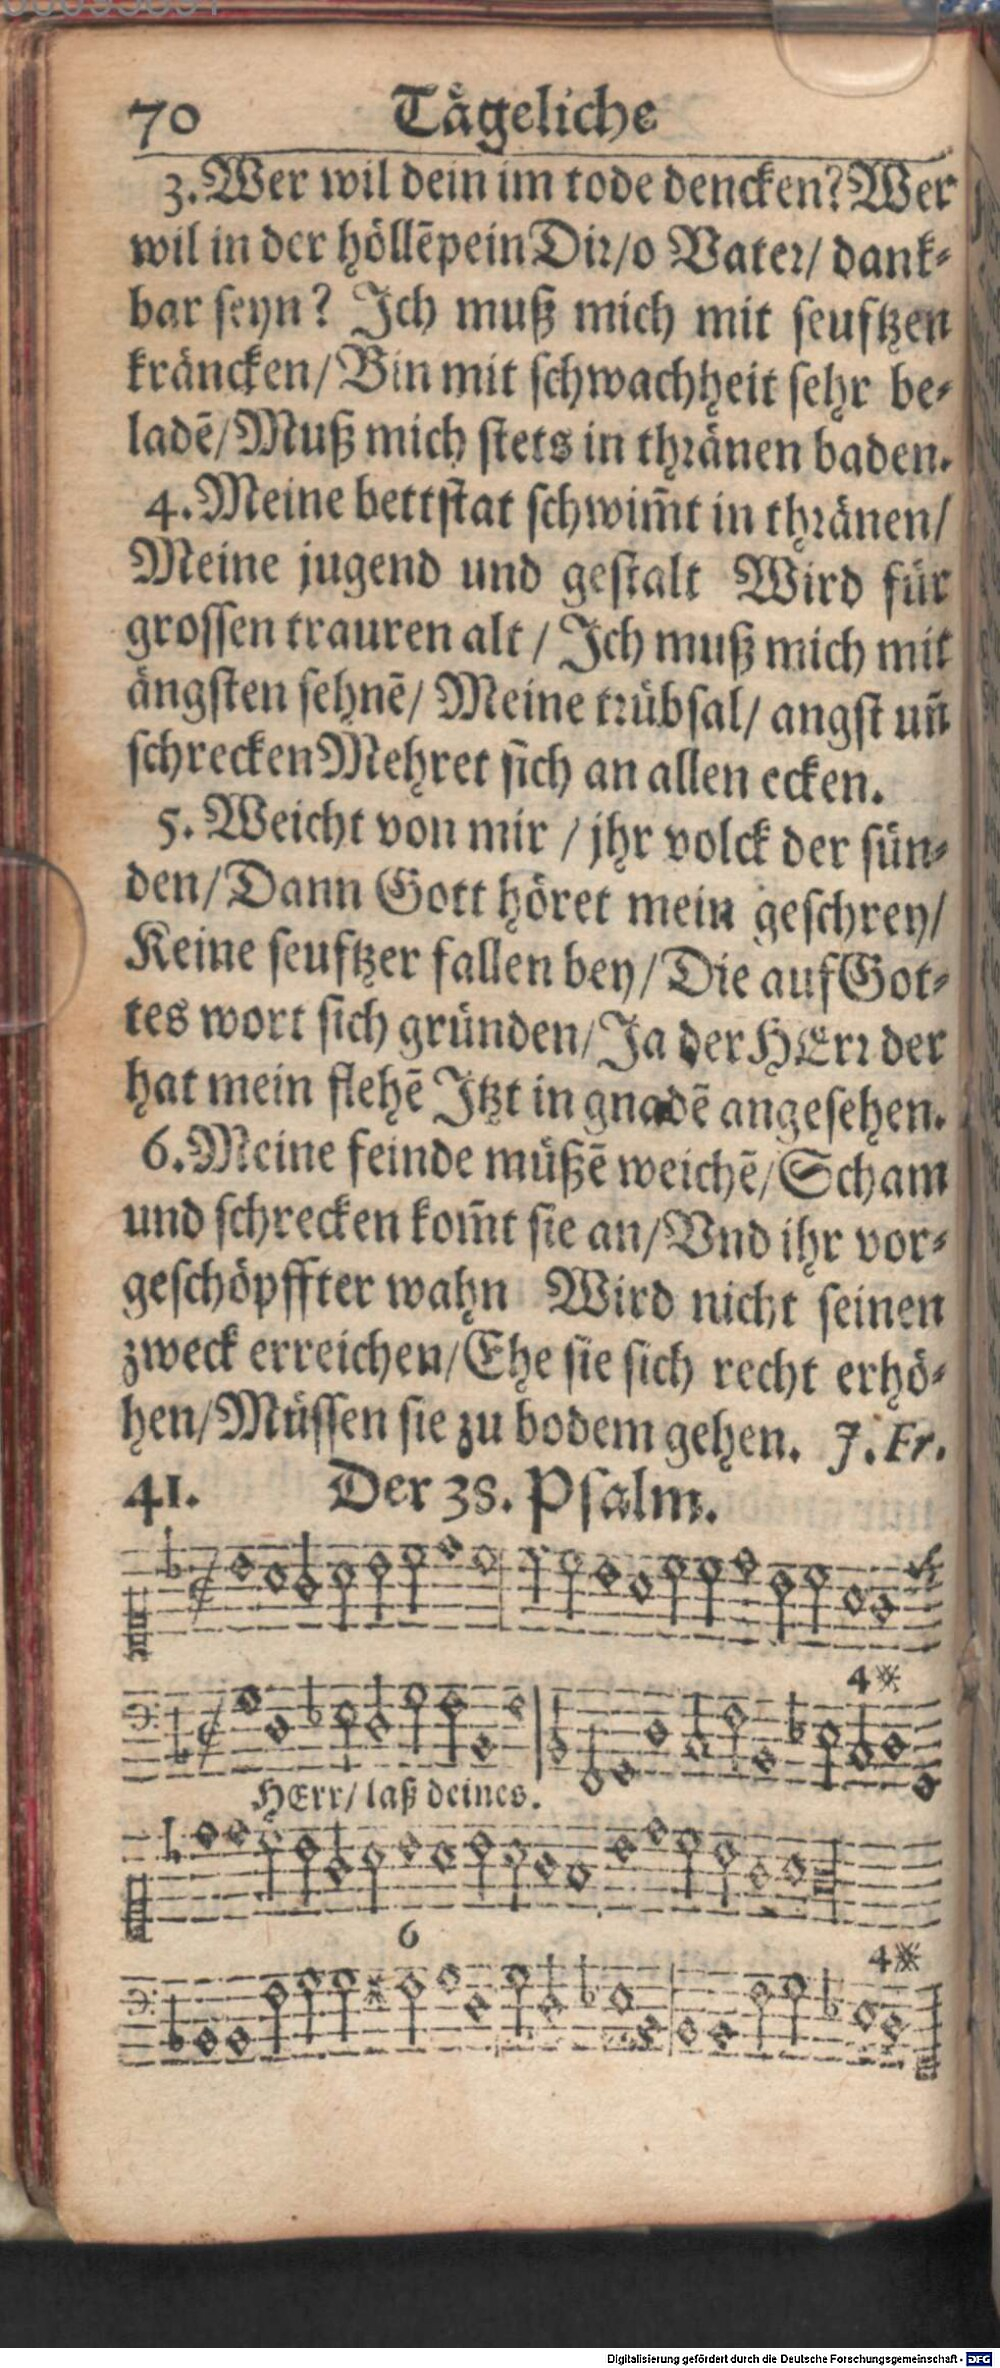 70 Tägeliche
3. Wer wil dein im tode dencken? Wer
wil in der höllēpein Dir/o Vater/ dank-
bar seyn? Ich muß mich mit seuftzen
kräncken/ Bin mit schwachheit sehr be-
ladē/ Muß mich stets in thränen baden.
4. Meine bettstat schwim̄t in thränen/
Meine jugend und gestalt Wird für
grossen trauren alt / Ich muß mich mit
ängsten sehnē/ Meine trübsal/ angst un̄
schrecken Mehret sich an allen ecken.
5. Weicht von mir / jhr volck der sün-
den/ Dann Gott höret mein geschrey/
Keine seuftzer fallen bey/ Die auf Got-
tes wort sich gründen/ Ja der HErr der
hat mein flehē Itzt in gnadē angesehen.
6. Meine feinde müßē weichē/ Scham
und schrecken kom̄t sie an/ Vnd ihr vor-
geschöpffter wahn Wird nicht seinen
zweck erreichen/ Ehe sie sich recht erhö-
hen/ Müssen sie zu bodem gehen. J. Fr.
41. Der 38. Psalm.
4
HErr/ laß deines.
6
4
Digitalisierung gefördert durch die Deutsche Forschungsgemeinschaft - DFG